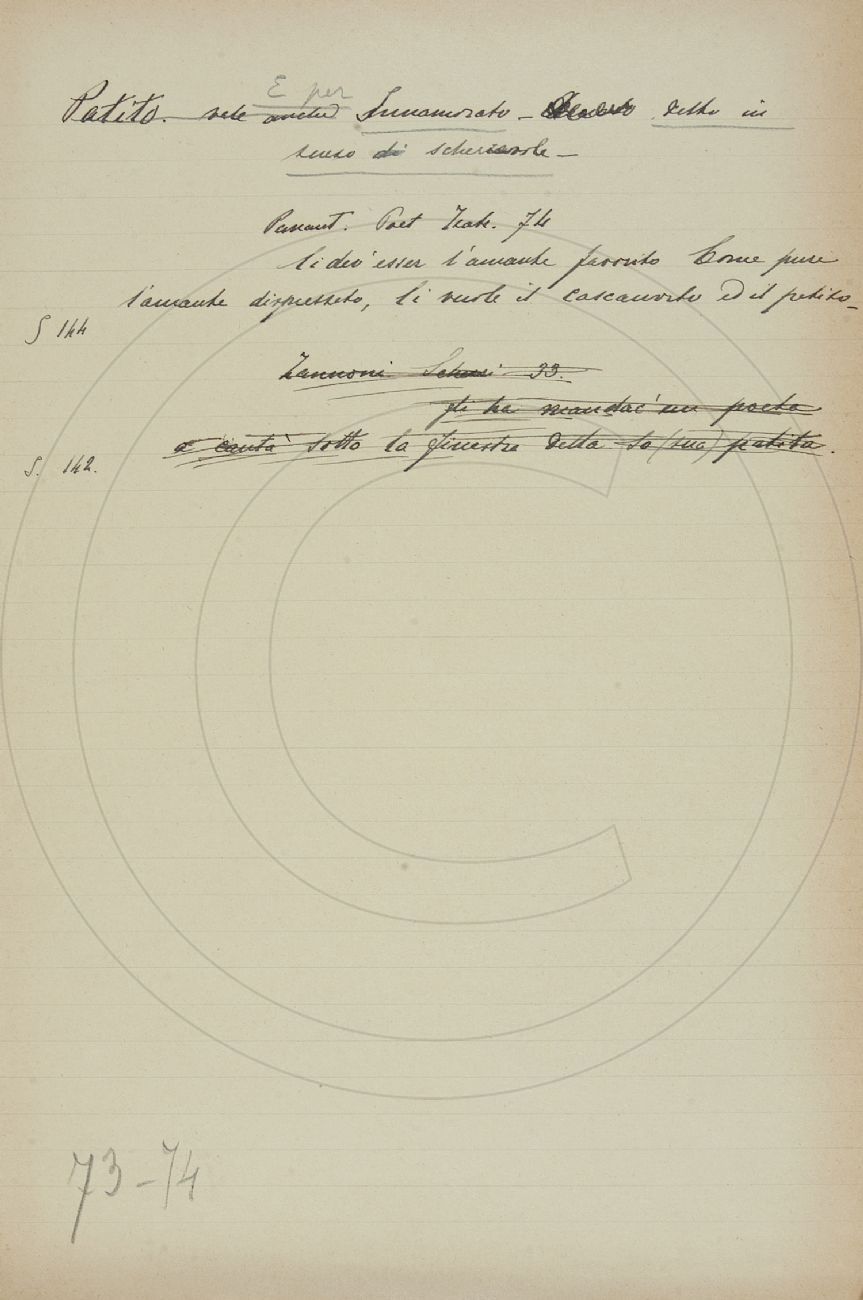 E per
Patito. vale anche Innamorato - detto in
senso di scherzevole -
Pananti. Poet Teatr. 74
Ci dev'esser l'amante favorito Come pure
l'amante disprezzato, Ci vuole il cascamorto ed il patito -
§ 144
Zannoni Scherzi 33.
gli ha mandac'un poeta
a cantà sotto la finestra della so (sua) patita.
§. 142.
73-74